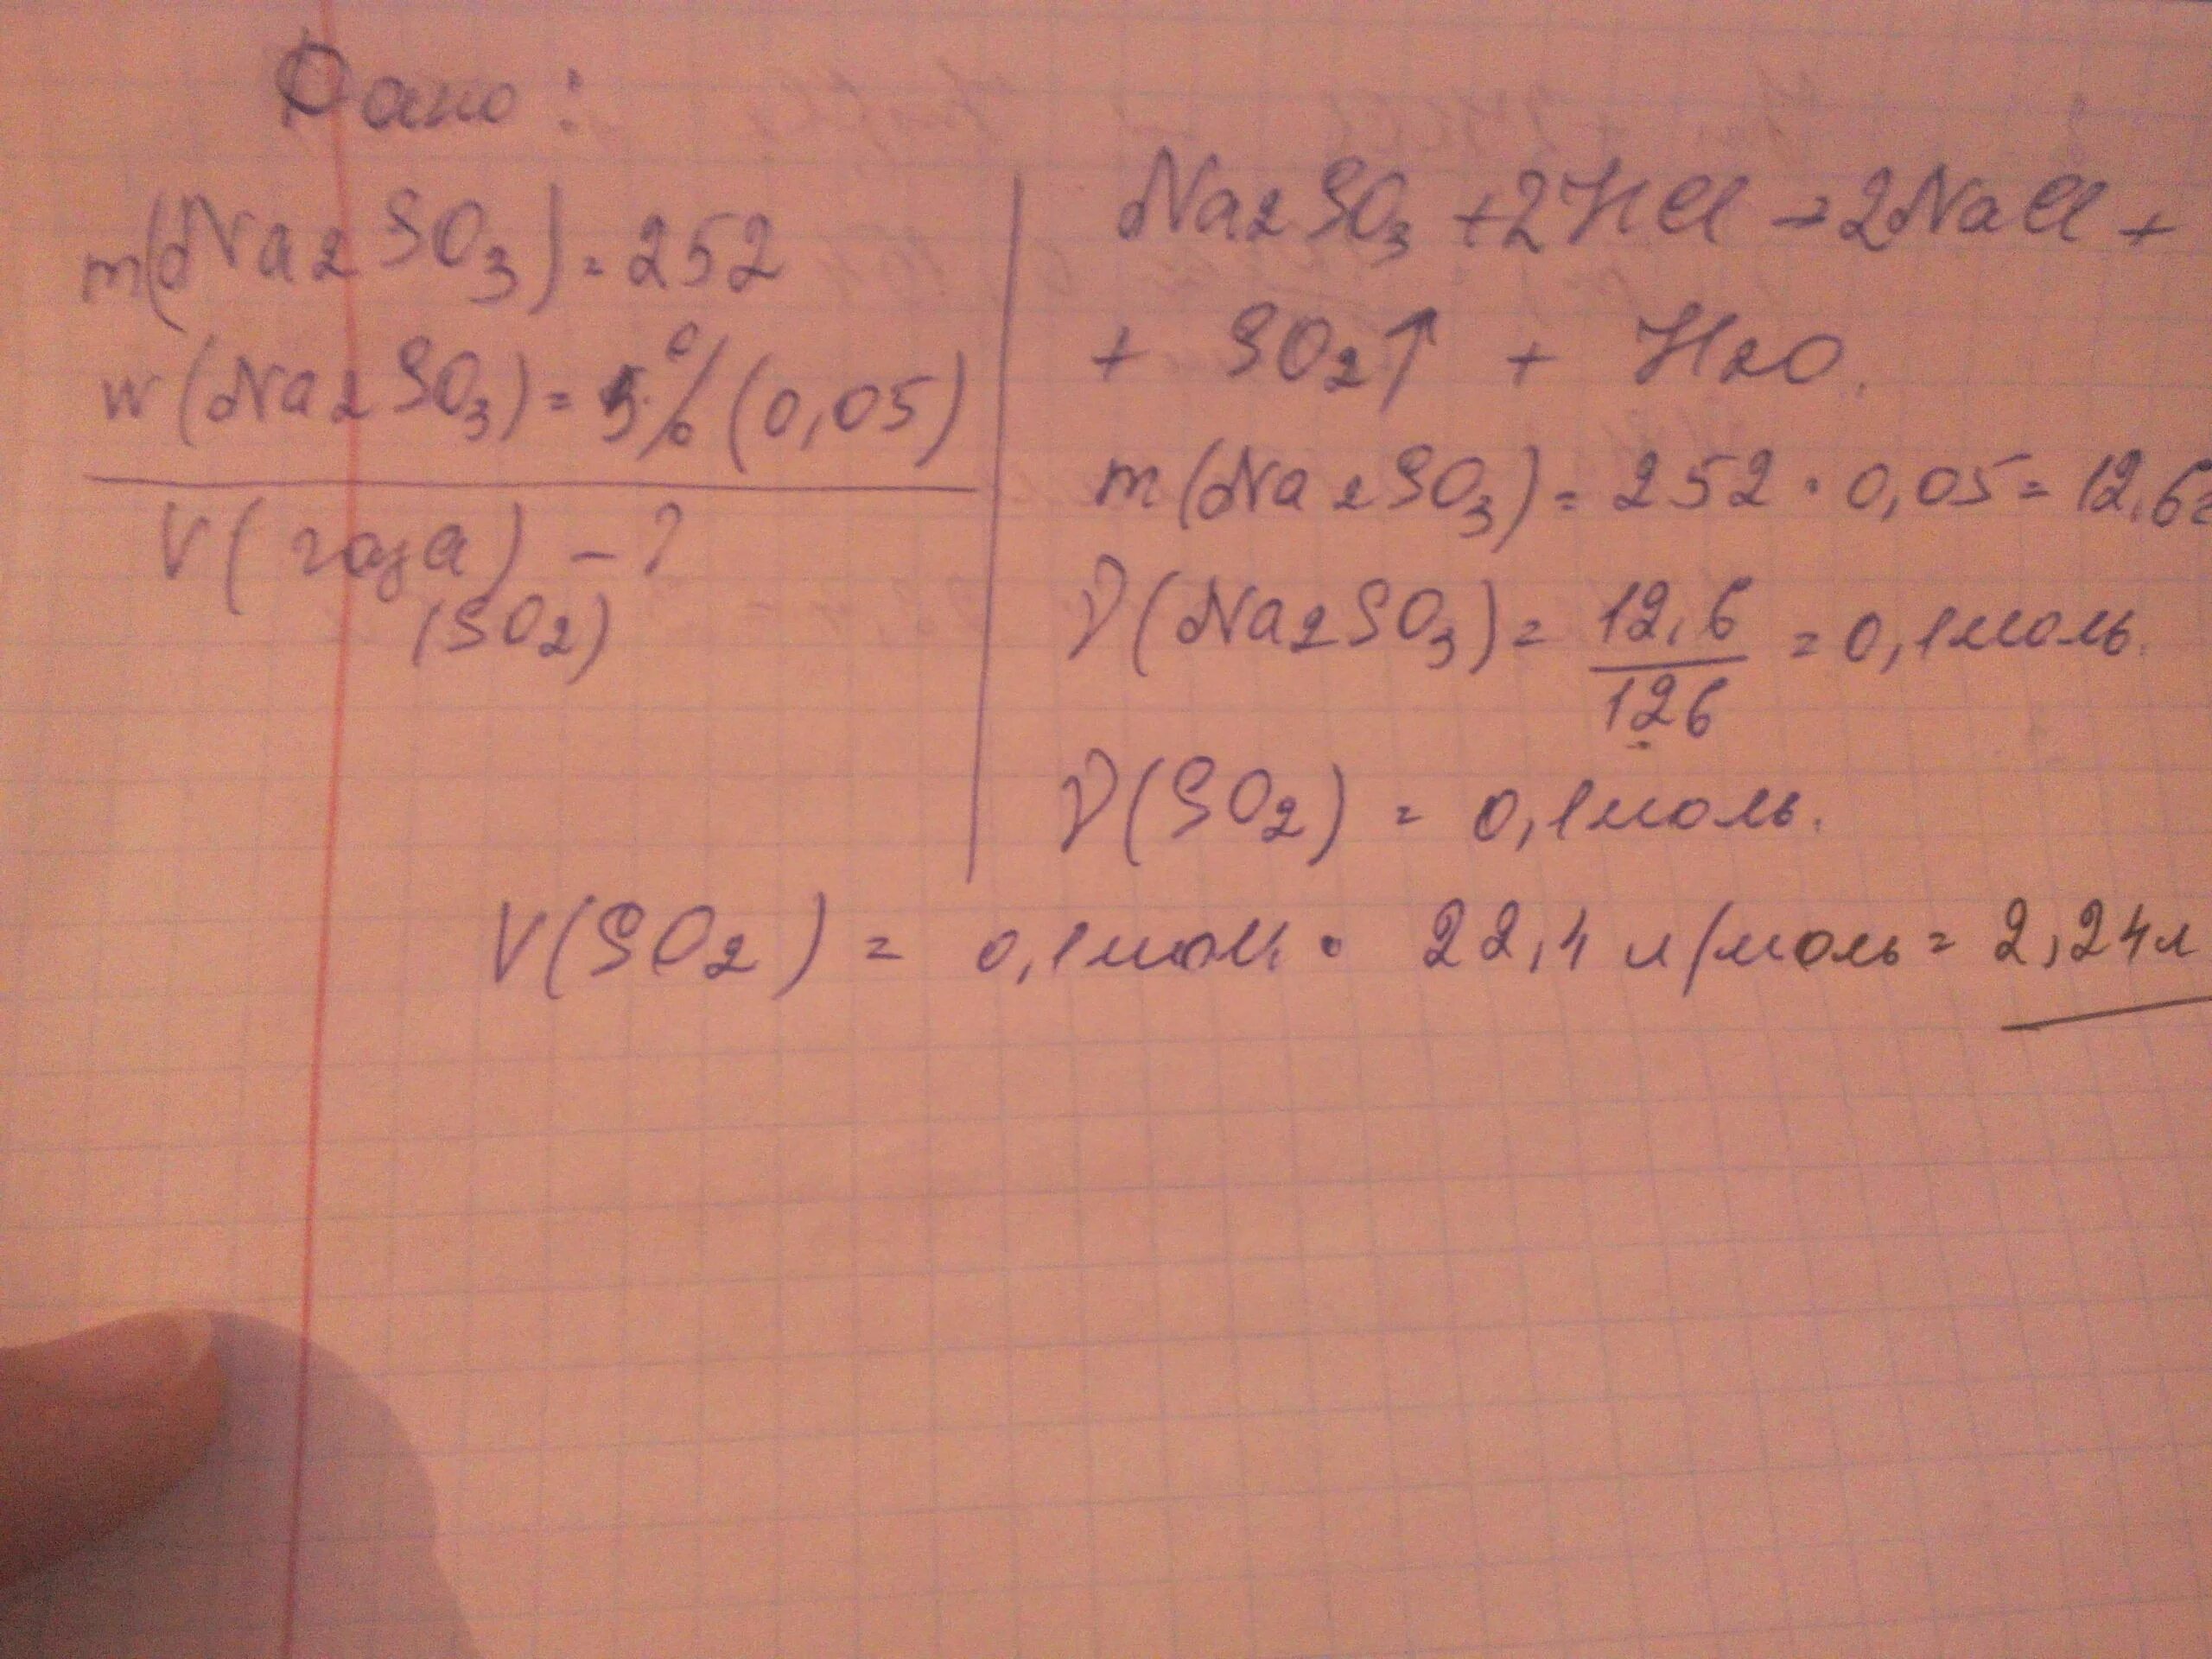 Дано:
m(Na2SO3) = 252
w(Na2SO3) = 5% (0,05)
V(газа) - ?
(SO2)
Na2SO3 + 2HCl → 2NaCl +
+ SO2↑ + H2O.
m(Na2SO3) = 252 · 0,05 = 12,6г
ν(Na2SO3) = 12,6/126 = 0,1моль.
ν(SO2) = 0,1моль.
V(SO2) = 0,1моль · 22,4 л/моль = 2,24л